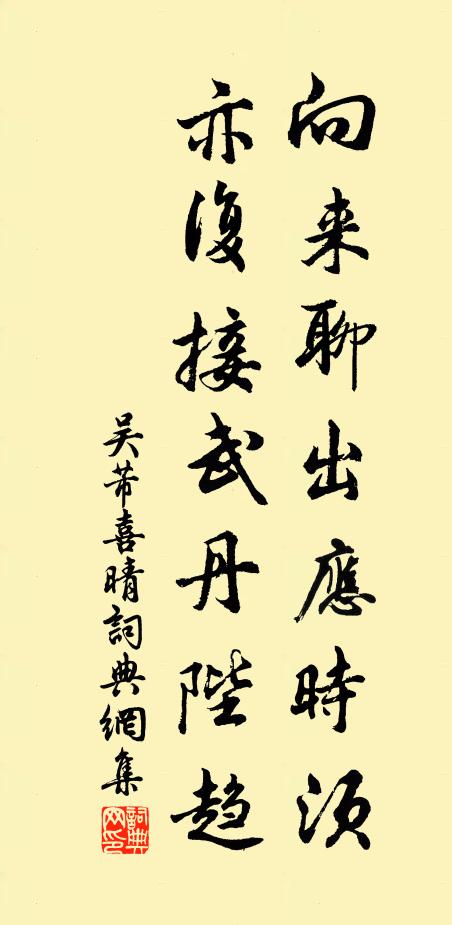 向来聊出應時須
亦復接武丹陛趋
吴芾喜晴詞典網集
詞典网印